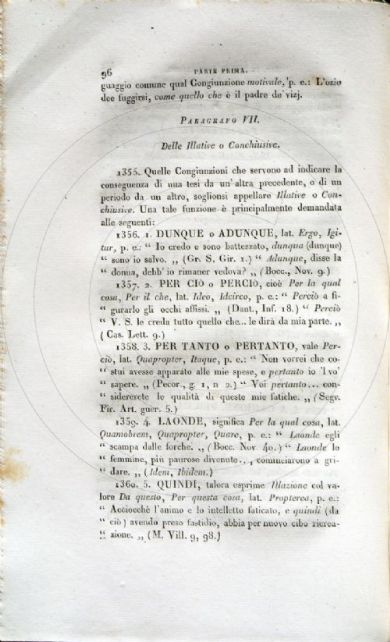 96 PARTE PRIMA.
guaggio comune qual Congiunzione motivale, p. e.: L'ozio
dee fuggirsi, come quello che è il padre de' vizj.
PARAGRAFO VII.
Delle Illative o Conchiusive.
1355. Quelle Congiunzioni che servono ad indicare la
conseguenza di una tesi da un'altra precedente, o di un
periodo da un altro, soglionsi appellare Illative o Con-
chiusive. Una tale funzione è principalmente demandata
alle seguenti:
1356. 1. DUNQUE o ADUNQUE, lat. Ergo, Igi-
tur, p. e.: “ Io credo e sono battezzato, dunqua (dunque)
“ sono io salvo. „ (Gr. S. Gir. 1.) “ Adunque, disse la
“ donna, debb' io rimaner vedova? „ (Bocc., Nov. 9.)
1357. 2. PER CIO o PERCIO, cioè Per la qual
cosa, Per il che, lat. Ideo, Idcirco, p. e.: “ Perciò a fi-
“ gurarlo gli occhi affissi. „ (Dant., Inf. 18.) “ Perciò
“ V. S. le creda tutto quello che... le dirà da mia parte. „
( Cas. Lett. 9.)
1358. 3. PER TANTO o PERTANTO, vale Per-
ciò, lat. Quapropter, Itaque, p. e.: “ Non vorrei che co-
“ stui avesse apparato alle mie spese, e pertanto io 'l vo'
“ sapere. „ (Pecor., g. 1, n 2.) “ Voi pertanto... con-
“ sidererete le qualità di queste mie fatiche. „ (Segv.
Fir. Art. guer. 5.)
1359. 4. LAONDE, significa Per la qual cosa, lat.
Quamobrem, Quapropter, Quare, p. e.: “ Laonde egli
“ scampa dalle forche. „ (Bocc. Nov. 40.) “ Laonde le
“ femmine, più paurose divenute.., cominciarono a gri-
“ dare. „ (Idem, Ibidem.)
1360. 5. QUINDI, talora esprime Illazione col va-
lore Da questo, Per questa cosa, lat. Propterea, p. e.:
“ Acciocchè l'animo e lo intelletto faticato, e quindi (da
“ ciò ) avendo preso fastidio, abbia per nuovo cibo ricrea-
“ zione. „ (M. Vill. 9, 98.)